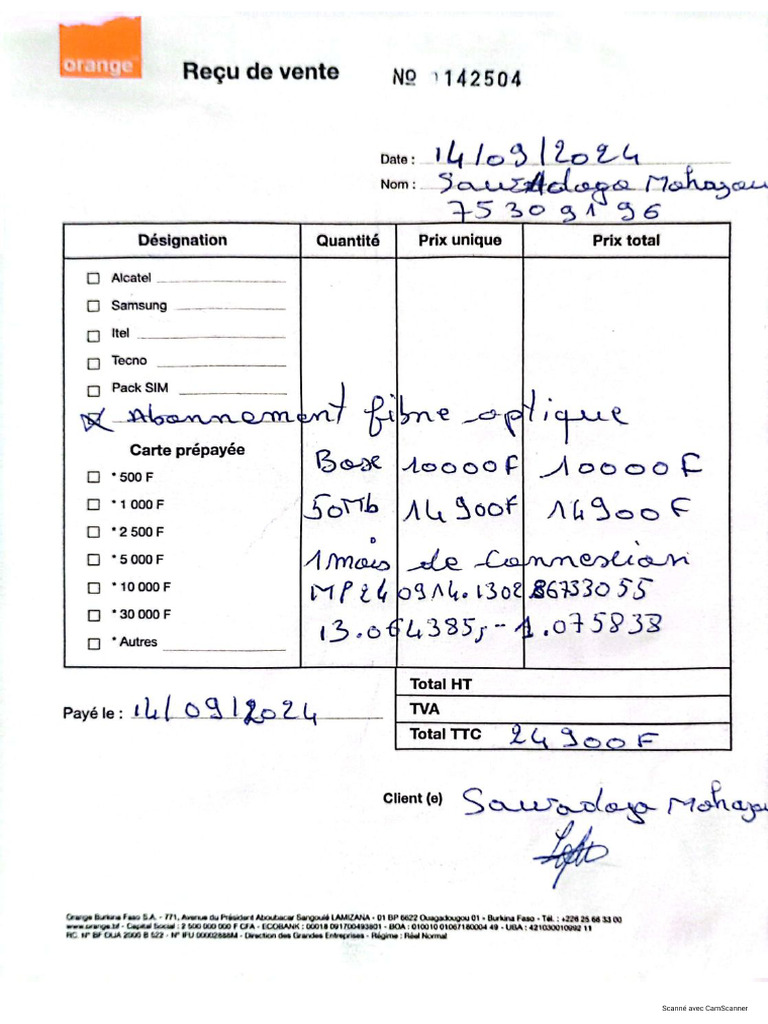 orange
Reçu de vente
Nº 142504
Date : 14/09/2024
Nom : Sawadogo
75309196
Désignation Quantité Prix unique Prix total
Alcatel
Samsung
Itel
Tecno
Pack SIM
Abonnement fibre optique
Carte prépayée
Base 10000F 10000F
* 500 F
* 1 000 F
50Mb 14900F 14900F
* 2 500 F
* 5 000 F
1 mois de connexion
* 10 000 F
MP240914.1302
* 30 000 F
13.064385,-1.075838
* Autres
Total HT
Payé le : 14/09/2024
TVA
Total TTC 24900F
Client (e) Sawadogo
Orange Burkina Faso S.A. - 771, Avenue du Président Aboubacar Sangoulé LAMIZANA - 01 BP 6622 Ouagadougou 01 - Burkina Faso - Tél. : +226 25 66 33 00
www.orange.bf - Capital Social : 2 500 000 000 F CFA - ECOBANK : 00018 091700493801 - BOA : 010010 01067180004 49 - UBA : 421030010992 11
RC. N° BF OUA 2000 B 522 - N° IFU 00002888M - Direction des Grandes Entreprises - Régime : Réel Normal
Scanné avec CamScanner